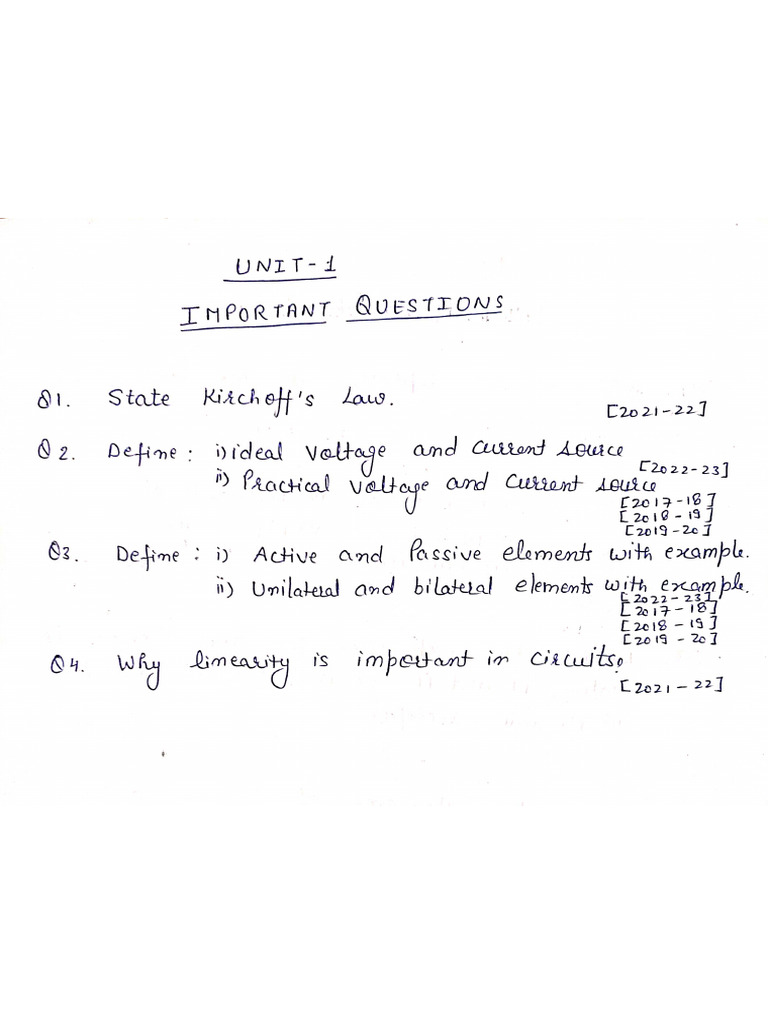 UNIT-1
IMPORTANT QUESTIONS
Q1. State Kirchoff's Law. [2021-22]
Q2. Define: i) ideal voltage and current source [2022-23]
ii) Practical voltage and current source
[2017-18]
[2018-19]
[2019-20]
Q3. Define: i) Active and Passive elements with example.
ii) Unilateral and bilateral elements with example.
[2022-23]
[2017-18]
[2018-19]
[2019-20]
Q4. Why linearity is important in circuits.
[2021-22]